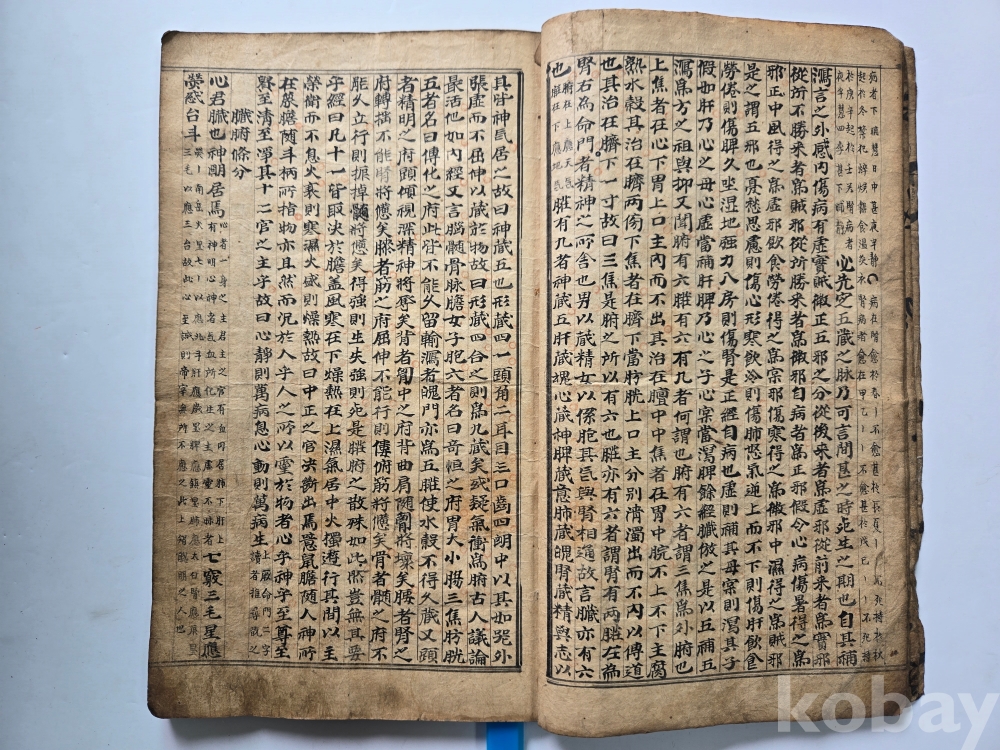 病者下晡慧日中甚夜半靜 病在腎愈於春
起於冬禁犯焠㶼熱食溫炙衣腎病者愈在甲乙
瀉言之外感內傷病有虛實賊微正五邪之分從後來者爲虛邪從前來者爲實邪
從所不勝來者爲賊邪從所勝來者爲微邪自病者爲正邪假令心病傷暑得之爲
邪正中風得之爲虛邪飮食勞倦得之爲實邪傷寒得之爲微邪中濕得之爲賊邪
是之謂五邪也憂愁思慮則傷心形寒飮冷則傷肺怒氣逆上而不下則傷肝飮食
勞倦則傷脾久坐湿地强力入房則傷腎是正經自病也虛則補其母實則瀉其子
假如肝乃心之母心虛當補肝脾乃心之子心實當瀉脾餘經臟倣之是以五補五
瀉爲方之祖與抑又聞腑有六臟有六有九者何謂也腑有六者謂三焦爲外腑也
上焦者在心下胃上口主內而不出其治在膻中中焦者在胃中脘不上不下主腐
熟水穀其治在臍兩傍下焦者在臍下當膀胱上口主分別清濁出而不內以傳道
也其治在臍下一寸故曰三焦是腑之所以有六也臟亦有六者謂腎有兩臟左爲
腎右爲命門者精神之所舍也男以藏精女以係胞其氣與腎相通故言臟亦有六
也 腑在上應天氣臟在下應地氣 臟有九者神藏五肝藏塊心藏神脾藏意肺藏魄腎藏精與志以
具皆神氣居之故曰神藏五也形藏四一頭角二耳目三口齒四胸中以其如器外
張虛而不屈伸以藏於物故曰形藏四合之則爲九藏矣或疑氣衝爲腑古人議論
長活他如內經又言腦髓骨脉膽女子胞六者名曰奇恒之府胃大小膓三焦肪胱
五者名曰傳化之府此皆不能久留輸瀉者魄門亦爲五臟使水穀不得久藏又頭
者精明之府頭傾視深精神將奪矣背者胸中之府背曲肩随胸將壞矣腰者腎之
府轉搖不能腎將憊矣膝者筋之府屈伸不能行則僂俯筋將憊矣骨者髓之府不
能久立行則振掉髓將憊矣得强則生失强則死是臟腑之散殊如此然豈無其要
乎經曰凡十一官取决於膽盖風寒在下燥熱在上濕氣居中火獨遊行其間以主
榮衛而不息火衰則寒濕火盛則燥熱故曰中正之官决斷出焉豈鼠膽隨人神所
在葵膽隨斗柄所指物亦且然而况於人乎人之所以靈於物者心乎神乎至尊至
貴至清至淨其十二官之主乎故曰心靜則萬病息心動則萬病生
臟腑條分
心君臟也神明居焉 七竅三毛星應
熒惑台斗
kobay